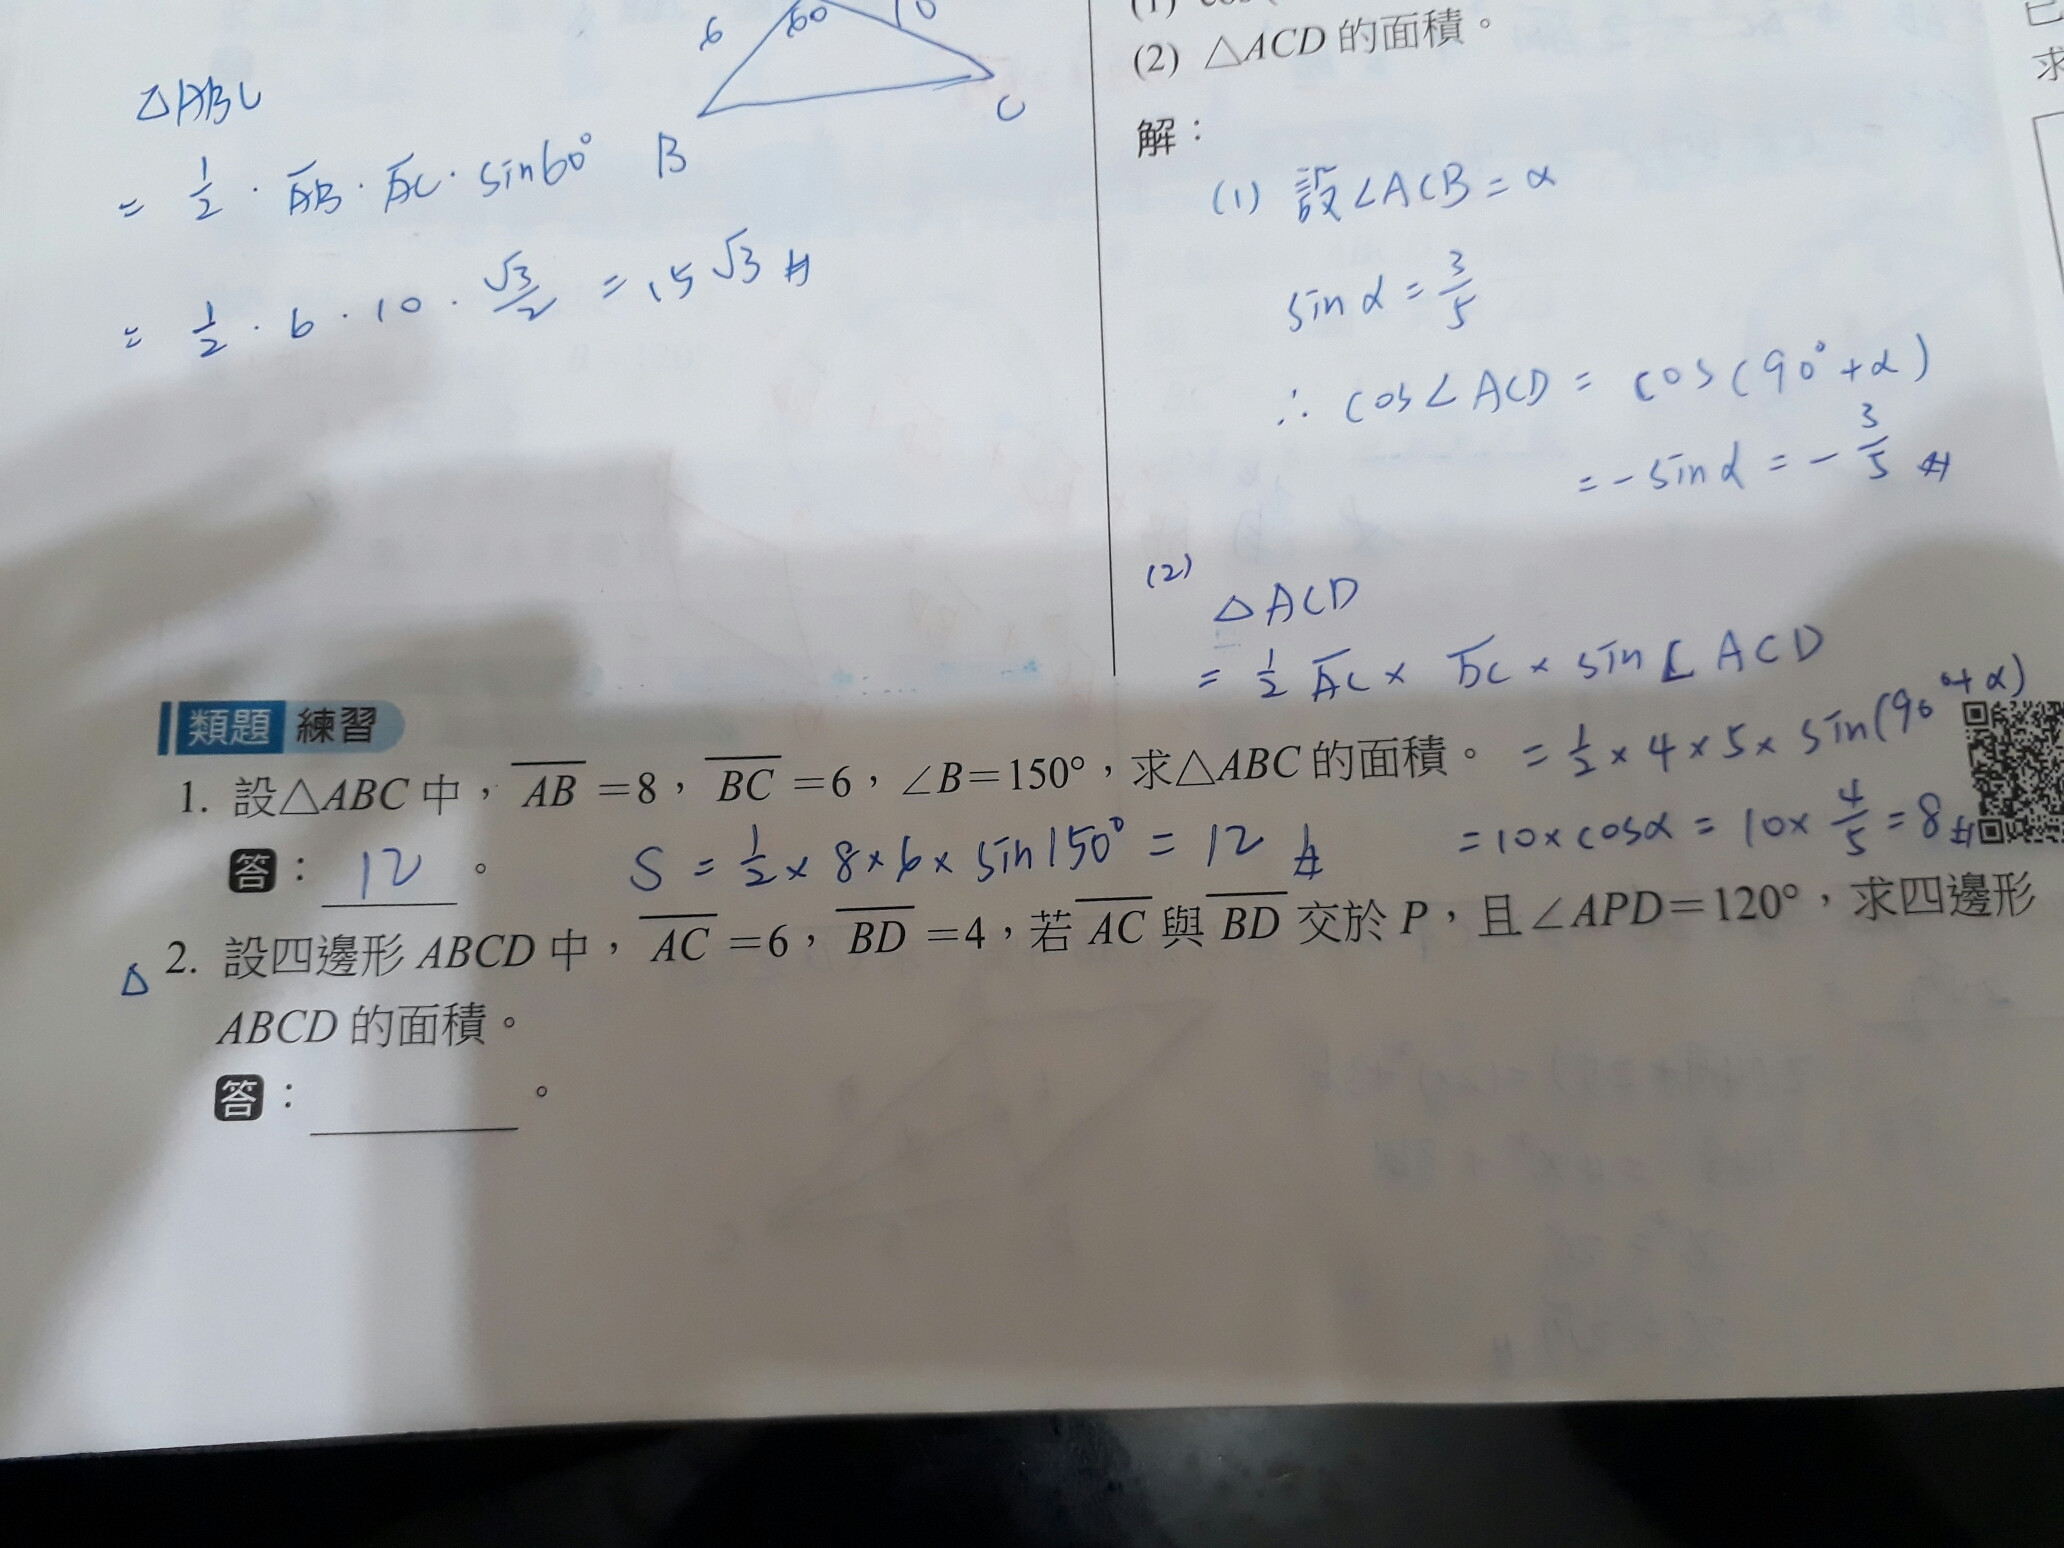 6 60 10
C
△ABC
= 1/2 · AB · AC · sin60° B
= 1/2 · 6 · 10 · √3/2 = 15√3 #
(2) △ACD 的面積。
解：
(1) 設∠ACB = α
sin α = 3/5
∴ cos∠ACD = cos(90°+α)
= -sin α = - 3/5 #
(2)
△ACD
= 1/2 AC × DC × sin∠ACD
= 1/2 × 4 × 5 × sin(90°+α)
= 10 × cosα = 10 × 4/5 = 8 #
類題 練習
1. 設△ABC 中，AB=8，BC=6，∠B=150°，求△ABC 的面積。
答：12。 S = 1/2 × 8 × 6 × sin150° = 12 #
△ 2. 設四邊形 ABCD 中，AC=6，BD=4，若 AC 與 BD 交於 P，且∠APD=120°，求四邊形
ABCD 的面積。
答：。
求